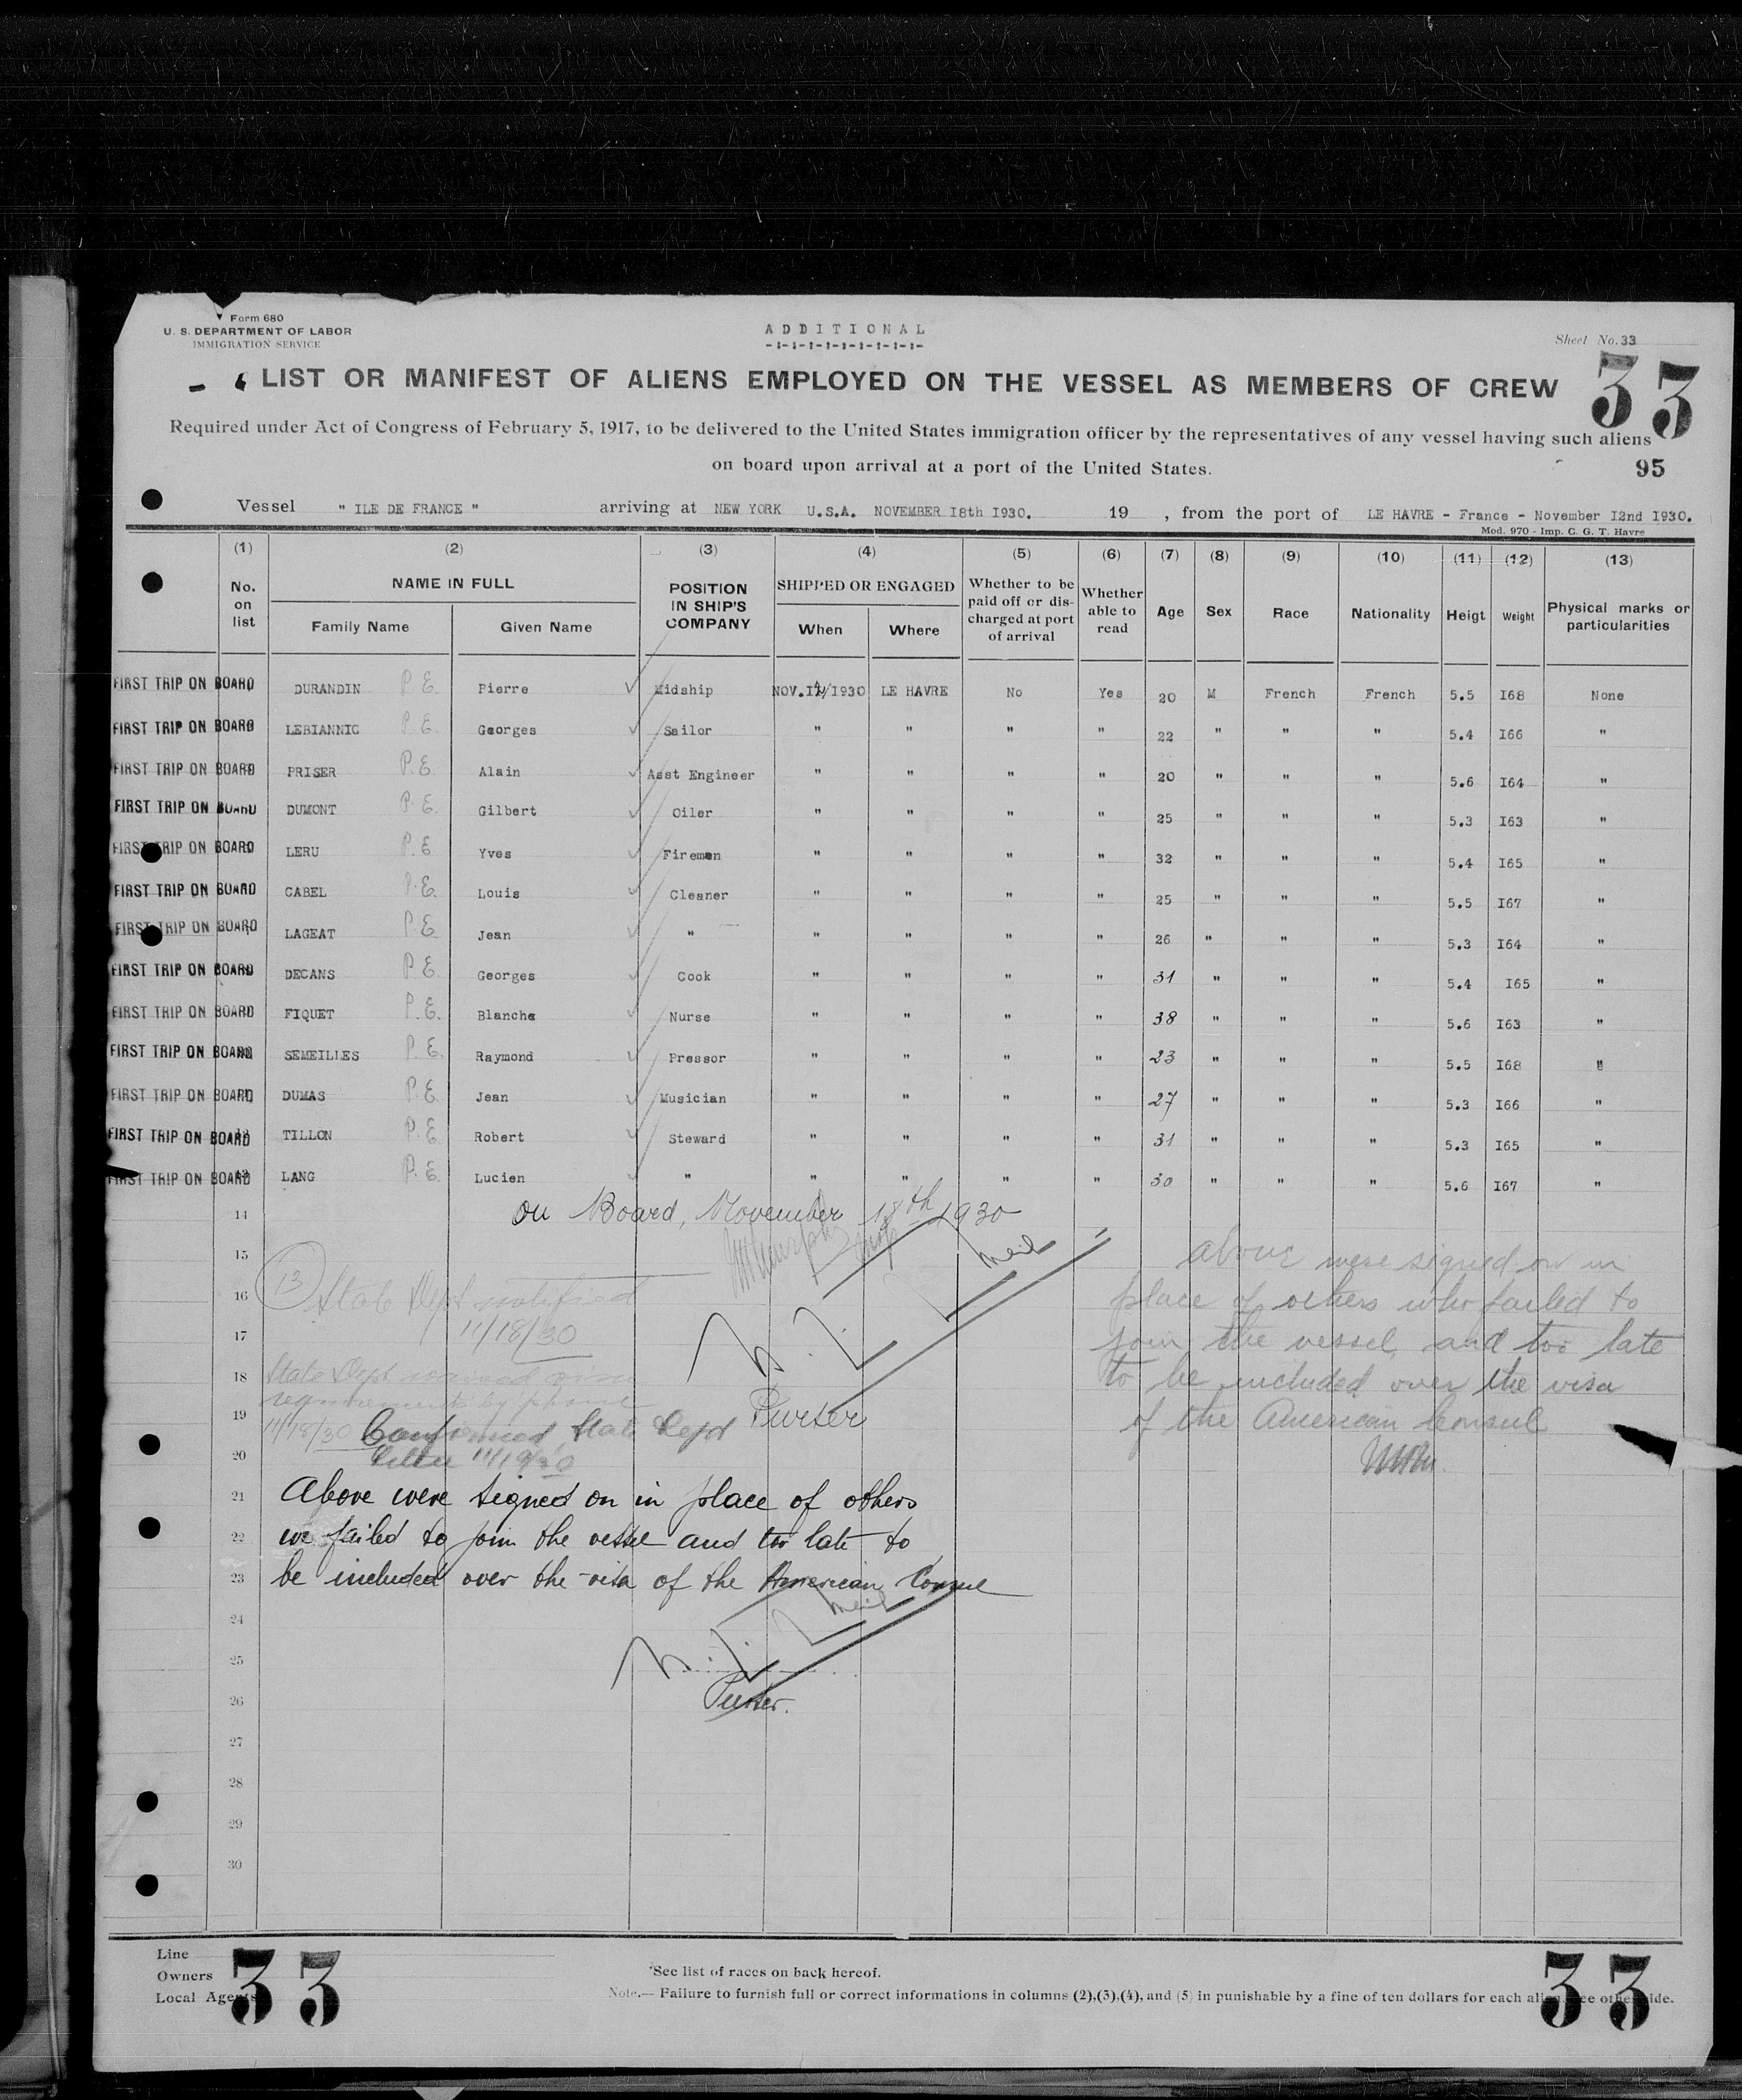 Form 680
U. S. DEPARTMENT OF LABOR
IMMIGRATION SERVICE
ADDITIONAL
-1-1-1-1-1-1-1-1-1-
Sheet No. 33
LIST OR MANIFEST OF ALIENS EMPLOYED ON THE VESSEL AS MEMBERS OF CREW
33
Required under Act of Congress of February 5, 1917, to be delivered to the United States immigration officer by the representatives of any vessel having such aliens
on board upon arrival at a port of the United States.
95
Vessel " ILE DE FRANCE " arriving at NEW YORK U.S.A. NOVEMBER I8th I930. 19 , from the port of LE HAVRE - France - November I2nd I930.
Mod. 970 - Imp. C. G. T. Havre
(1) (2) (3) (4) (5) (6) (7) (8) (9) (10) (11) (12) (13)
No. on list NAME IN FULL Family Name Given Name POSITION IN SHIP'S COMPANY SHIPPED OR ENGAGED When Where Whether to be paid off or discharged at port of arrival Whether able to read Age Sex Race Nationality Heigt Weight Physical marks or particularities
FIRST TRIP ON BOARD DURANDIN P.E. Pierre ✓ Midship NOV. /1930 LE HAVRE No Yes 20 M French French 5.5 I68 None
FIRST TRIP ON BOARD LEBIANNIC P.E. Georges ✓ Sailor " " " " 22 " " " 5.4 I66 "
FIRST TRIP ON BOARD PRISER P.E. Alain ✓ Asst Engineer " " " " 20 " " " 5.6 I64 "
FIRST TRIP ON BOARD DUMONT P.E. Gilbert ✓ Oiler " " " " 25 " " " 5.3 I63 "
FIRST TRIP ON BOARD LERU P.E. Yves ✓ Firemen " " " " 32 " " " 5.4 I65 "
FIRST TRIP ON BOARD CABEL P.E. Louis ✓ Cleaner " " " " 25 " " " 5.5 I67 "
FIRST TRIP ON BOARD LAGEAT P.E. Jean ✓ " " " " " 26 " " " 5.3 I64 "
FIRST TRIP ON BOARD DECANS P.E. Georges ✓ Cook " " " " 31 " " " 5.4 I65 "
FIRST TRIP ON BOARD FIQUET P.E. Blanche ✓ Nurse " " " " 38 " " " 5.6 I63 "
FIRST TRIP ON BOARD SEMEILLES P.E. Raymond ✓ Pressor " " " " 23 " " " 5.5 I68 "
FIRST TRIP ON BOARD DUMAS P.E. Jean ✓ Musician " " " " 27 " " " 5.3 I66 "
FIRST TRIP ON BOARD TILLON P.E. Robert ✓ Steward " " " " 31 " " " 5.3 I65 "
FIRST TRIP ON BOARD LANG P.E. Lucien ✓ " " " " " 30 " " " 5.6 I67 "
14
on Board, November 18th 1930
15
13
16
State Dept notified
11/18/30
17
18
State Dept waived visa
requirements by phone
19
11/18/30 Confirmed State Dept
20
Letter 11/19/30
Purser
above were signed on in
place of others who failed to
join the vessel and too late
to be included over the visa
of the American Consul
21
Above were signed on in place of others
22
we failed to join the vessel and too late to
23
be included over the visa of the American Consul
24
25
26
Purser.
27
28
29
30
Line
Owners
Local Agents
33
See list of races on back hereof.
Note.— Failure to furnish full or correct informations in columns (2),(3),(4), and (5) in punishable by a fine of ten dollars for each alien. See other side.
33